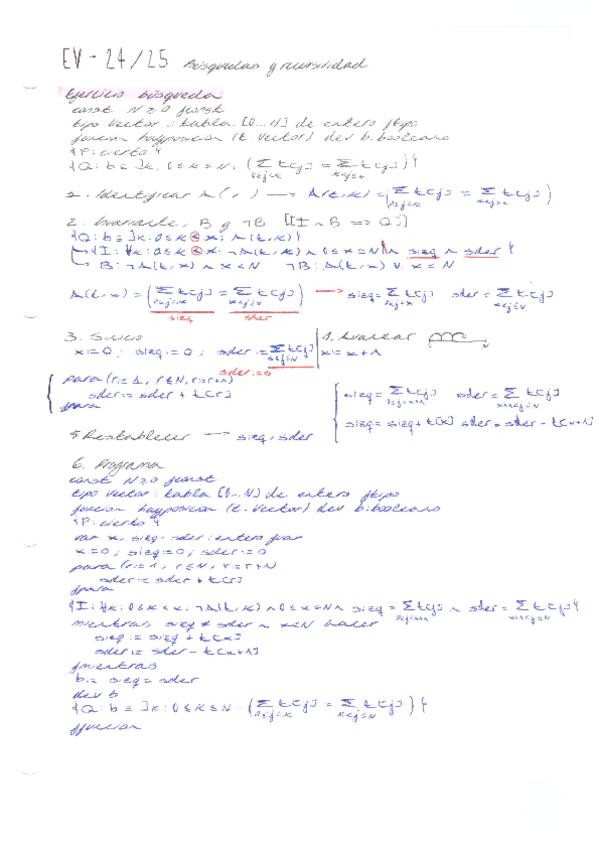 EV - 24/25 Búsquedas y recursividad
Ejercicio búsqueda
const N ≥ 0 fconst
tipo vector : tabla [0...N] de entero ftipo
función hayposicion (t: Vector) dev b: booleano
{P: cierto}
{Q: b ≡ ∃k: 0≤k≤N: (Σ t[j] = Σ t[j])}
0≤j<k k<j≤N
1. Identificar A( , ) → A(t,k) = (Σ t[j] = Σ t[j])
0≤j<k k<j≤N
2. Invariante, B y ¬B [[I ∧ ¬B ⇒ Q]]
{Q: b ≡ ∃k: 0≤k x: A(t,k)}
{I: ∀k: 0≤k x: ¬A(t,k) ∧ 0≤x≤N ∧ sizq ∧ sder}
B: ¬A(t,x) ∧ x<N ¬B: A(t,x) ∨ x=N
A(t,x) = (Σ t[j] = Σ t[j]) → sizq = Σ t[j] sder = Σ t[j]
0≤j<x x<j≤N 0≤j<x x<j≤N
sizq sder
3. Inicio 4. Avanzar
x:=0; sizq:=0; sder:= Σ t[j] x:=x+1
0<j≤N
sder:=0
para (r:=1, r≤N, r:=r+1)
sder:= sder + t[r]
fpara
sizq = Σ t[j] sder = Σ t[j]
0≤j<x+1 x+1<j≤N
sizq = sizq + t[x] sder = sder - t[x+1]
5 Restablecer → sizq, sder
6. Programa
const N≥0 fconst
tipo vector : tabla [0...N] de entero ftipo
función hayposicion (t: Vector) dev b: booleano
{P: cierto}
var x, sizq, sder: entero fvar
x:=0; sizq:=0; sder:=0
para (r:=1, r≤N, r:=r+1)
sder:= sder + t[r]
fpara
{I: ∀k: 0≤k<x: ¬A(t,k) ∧ 0≤x≤N ∧ sizq = Σ t[j] ∧ sder = Σ t[j]}
0≤j<x x<j≤N
mientras sizq ≠ sder ∧ x<N hacer
sizq:= sizq + t[x]
sder:= sder - t[x+1]
fmientras
b:= sizq = sder
dev b
{Q: b ≡ ∃k: 0≤k≤N: (Σ t[j] = Σ t[j])}
0≤j<k k<j≤N
ffunción